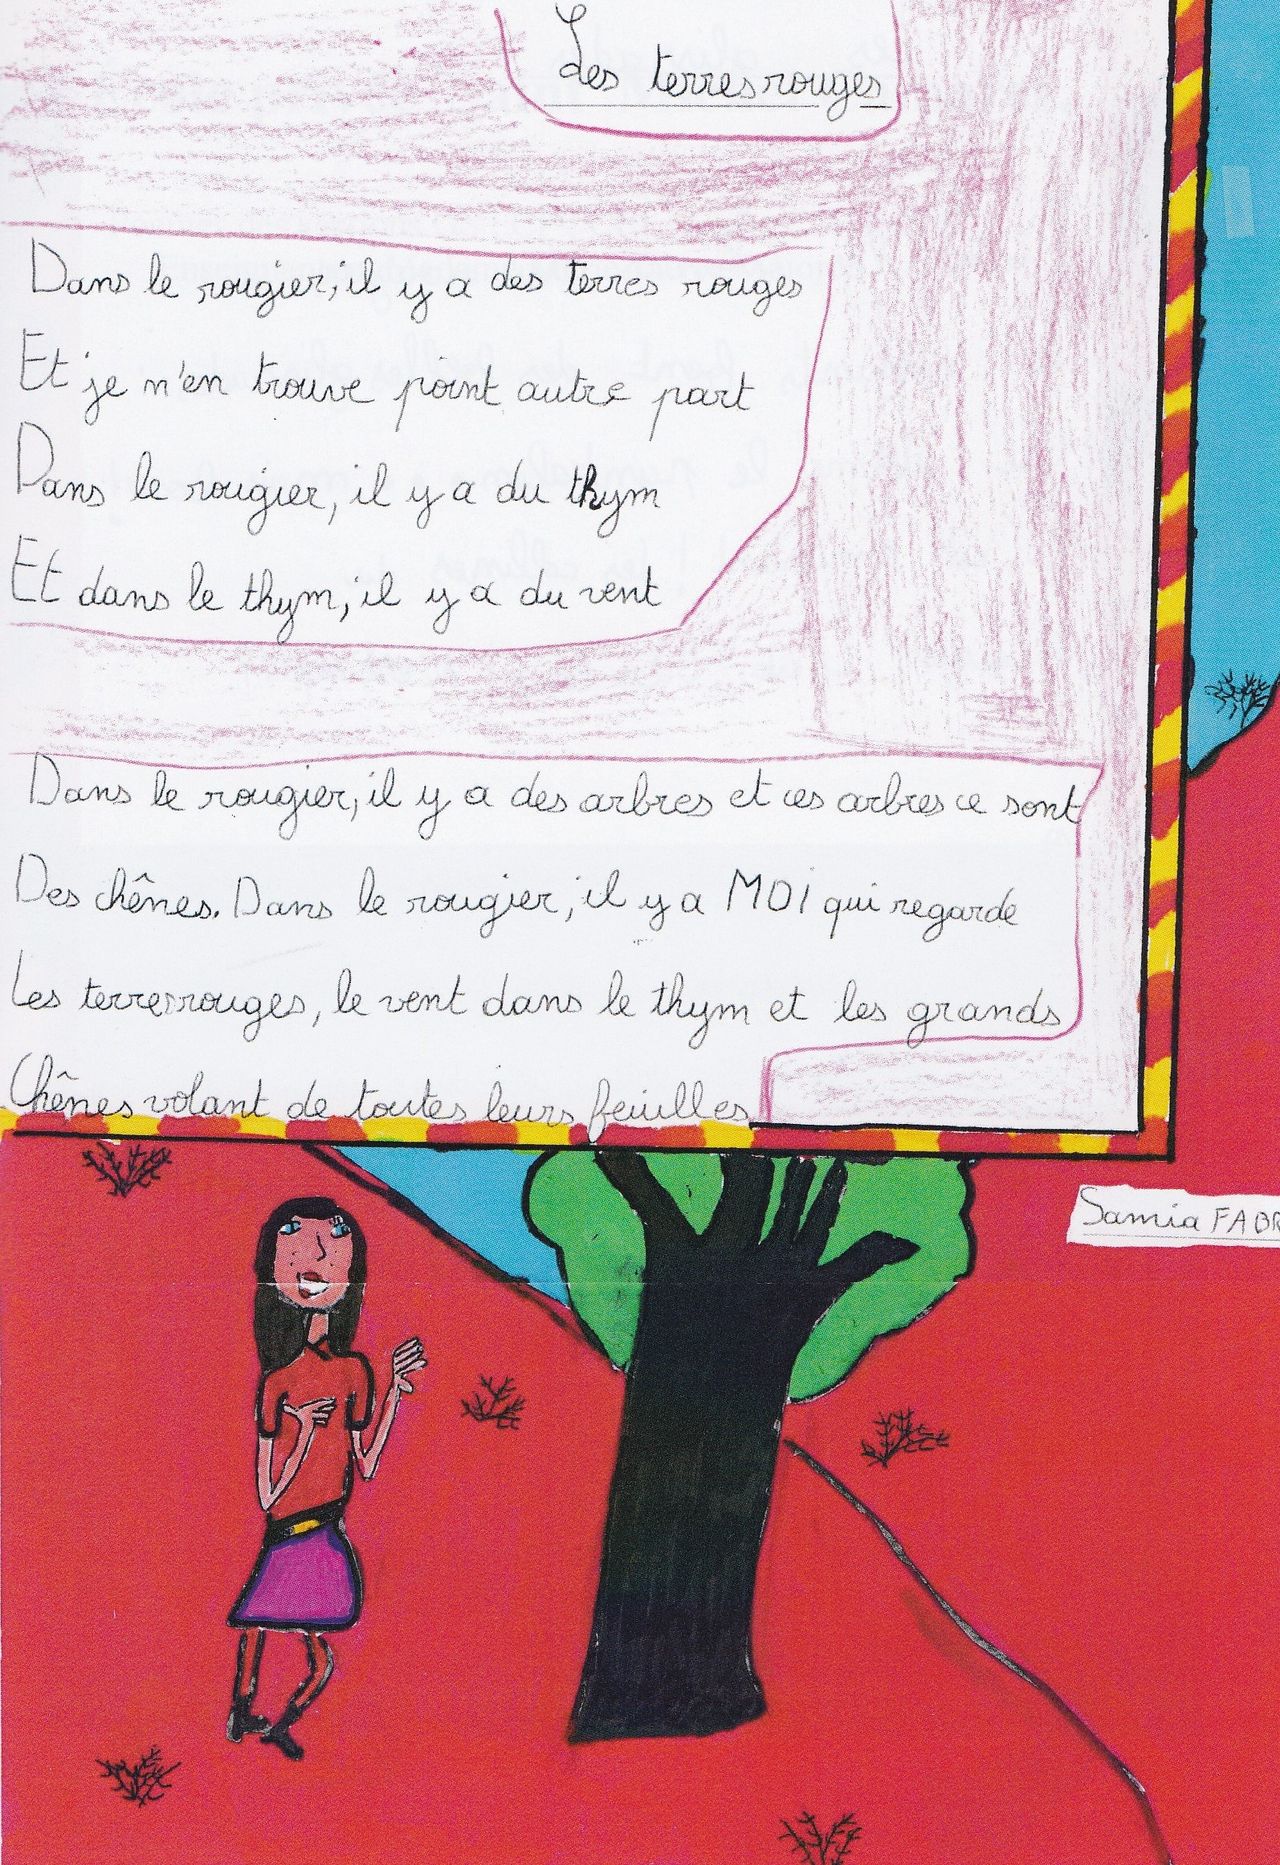 Les terres rouges
Dans le rougier, il y a des terres rouges
Et je n'en trouve point autre part
Dans le rougier, il y a du thym
Et dans le thym, il y a du vent
Dans le rougier, il y a des arbres et ces arbres ce sont
Des chênes. Dans le rougier, il y a MOI qui regarde
Les terres rouges, le vent dans le thym et les grands
Chênes volant de toutes leurs feuilles
Samia FABR